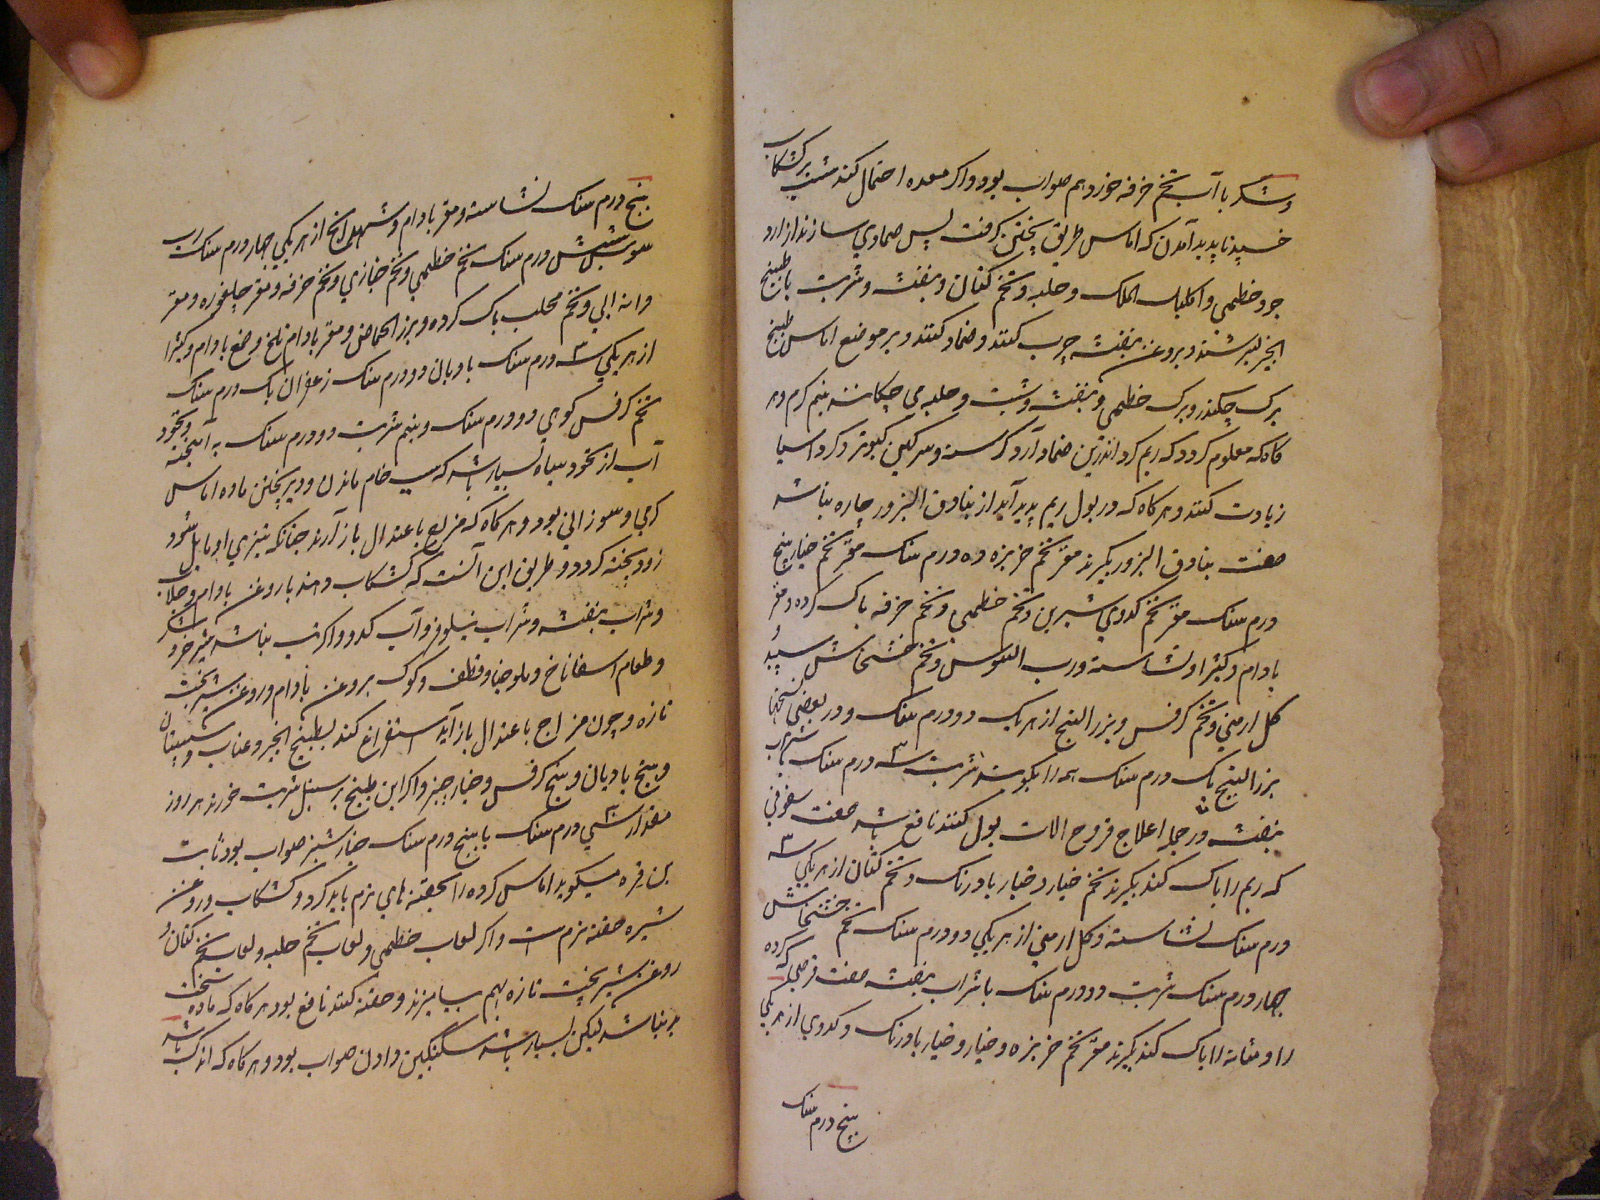 و شکر با آب تخم خرفه خورد هم صواب بود و اکر معده احتمال کند
خسپد تا پدید آمدن که اماس طریق پختن کرفت پس ضمادی سازند از ارد
جو و خطمی و اکلیل الملک و حلبه و تخم کتان و بنفشه و شربت با طبیخ
انجیر بسرشند و بروغن بنفشه چرب کنند و ضماد کنند و بر موضع اماس طبیخ
برک چکندر و برک خطمی و بنفشه و شبت و حلبه می چکانند نیم کرم و هر
کاه که معلوم کردد که ریم کرد اندرین ضماد آرد کرسنه و سرکین کبوتر و کرد اسیا
زیادت کنند و هر کاه که در بول ریم پدید آید از بنادق البزور چاره نباشد
صفت بنادق البزور بکیرند مغز تخم خربزه ده درم سنک مغز تخم خیار پنج
درم سنک مغز تخم کدوی شیرین و تخم خطمی و تخم خرفه پاک کرده و مغز
بادام و کثیرا و نشاسته و رب السوس و تخم خشخاش سپید و
کل ارمنی و تخم کرفس و بزر البنج از هر یک دو درم سنک و در بعضی نسخها
بزر البنج یک درم سنک همه را بکوبند شربت سه درم سنک با شراب
بنفشه و در جمله اعلاج قروح الات بول کنند نافع باشد صفت سفوفی
که ریم را پاک کند بکیرند تخم خیار و خیار بادرنک و تخم کتان از هر یکی سه
درم سنک نشاسته و کل ارمنی از هر یکی دو درم سنک تخم خشخاش
چهار درم سنک شربت دو درم سنک با شراب بنفشه صفت قرصی که کرده
را و مثانه را پاک کند بکیرند مغز تخم خربزه و خیار و خیار بادرنک و کدوی از هر یکی
پنج درم سنک
پنج درم سنک نشاسته و مغز بادام و از هر یکی چهار درم سنک رب
سوس شش درم سنک تخم خطمی و تخم خبازی و تخم خرفه و مغز چلغوزه و مغز
دانه ابی و تخم محلب پاک کرده و بزر الحماض و مغز بادام تلخ و صمغ بادام و کثیرا
از هر یکی سه درم سنک بادیان دو درم سنک زعفران یک درم سنک
تخم کرفس کوهی دو درم سنک و نیم شربت دو درم سنک به
آب از نخود سیاه بسیار باشد که سبب خام ماندن و دیر پختن ماده اماس
کرمی و سوزانی بود و هر کاه که مزاج با عتدال باز آرند چنانکه تیزی او مایل شود
زود پخته کردد و طریق این آنست که کشکاب دهند با روغن بادام و جلاب
و شراب بنفشه و شراب نیلوفر و آب کدو و اکر تب نباشد شیر خر و
و طعام اسفاناخ و ملوخیا و قطف و کوک بروغن بادام و روغن شیر پخت
تازه و چون مزاج با عتدال باز آید استفراغ کند بطبیخ انجیر و عناب و سپستان
و بیخ بادیان و بیخ کرفس و خیار چنبر و اکر این طبیخ بر سبیل شربت خورند هر روز
مقدار سی درم سنک با پنج درم سنک خیار شنبر صواب بود ثابت
بن قره میکوید اماس کرده را بحقنه های نرم باید کرد و کشکاب و روغن
شیره حقنه نرم است و اکر لعاب خطمی و لعاب تخم حلبه و لعاب تخم کتان و
روغن شیر پخت تازه بهم بیامیزند و حقنه کنند نافع بود هر کاه که ماده سخت
نباشد لیکن بسیار باشد سکنکبین دادن صواب بود و هر کاه که اندک باشد